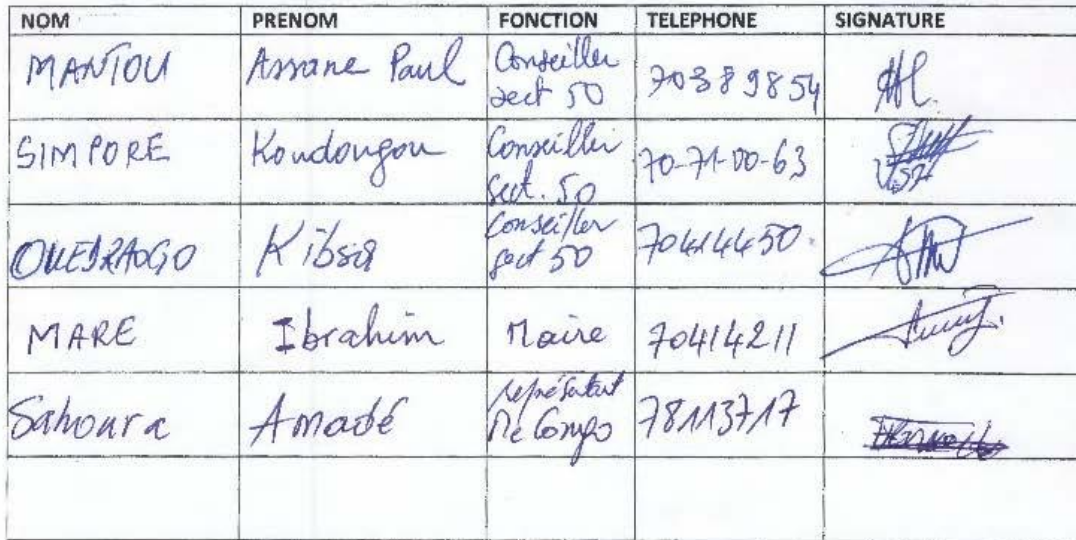 NOM PRENOM FONCTION TELEPHONE SIGNATURE
MANTOU Assane Paul Conseiller sect 50 70389854
SIMPORE Koudougou Conseiller Sect. 50 70-71-00-63
OUEDRAOGO Kibsa Conseiller sect 50 70414450
MARE Ibrahim Maire 70414211
Sahoura Amadé représentant 78113717